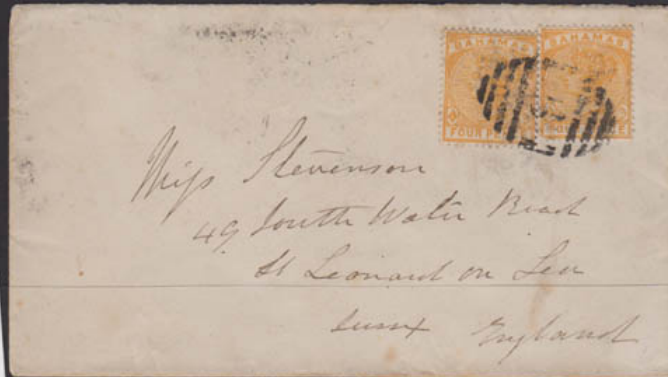 BAHAMAS BAHAMAS
FOUR PENCE
Miss Stevenson
49 South Water Road
St Leonard on Sea
Sussex England